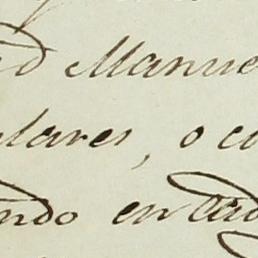 d Manue
lares, o co
ndo en cad